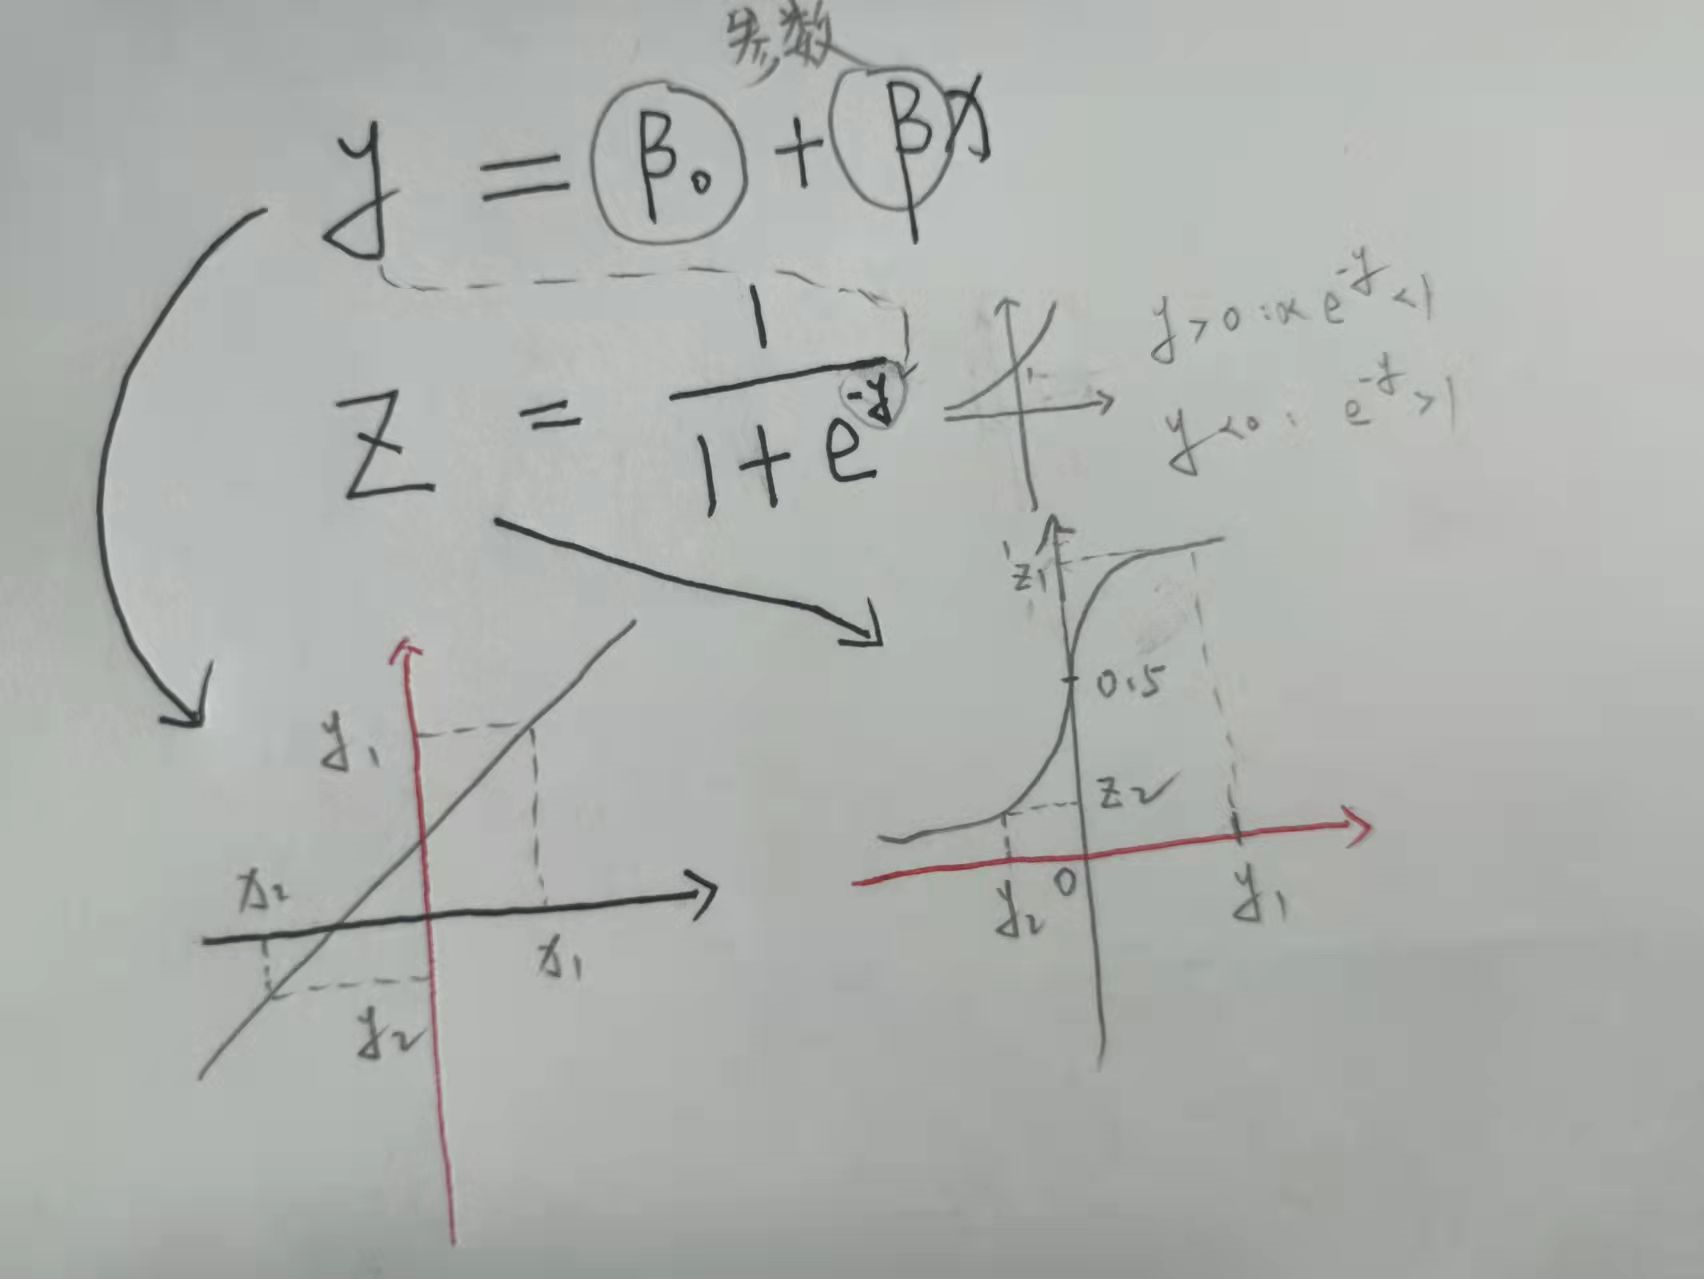 参数
y = β₀ + βx
z = 1/(1+e^-y)
y>0: e^-y<1
y<0: e^-y>1
1
1
z₁
0.5
z₂
0
y₂
y₁
y₁
x₂
x₁
y₂